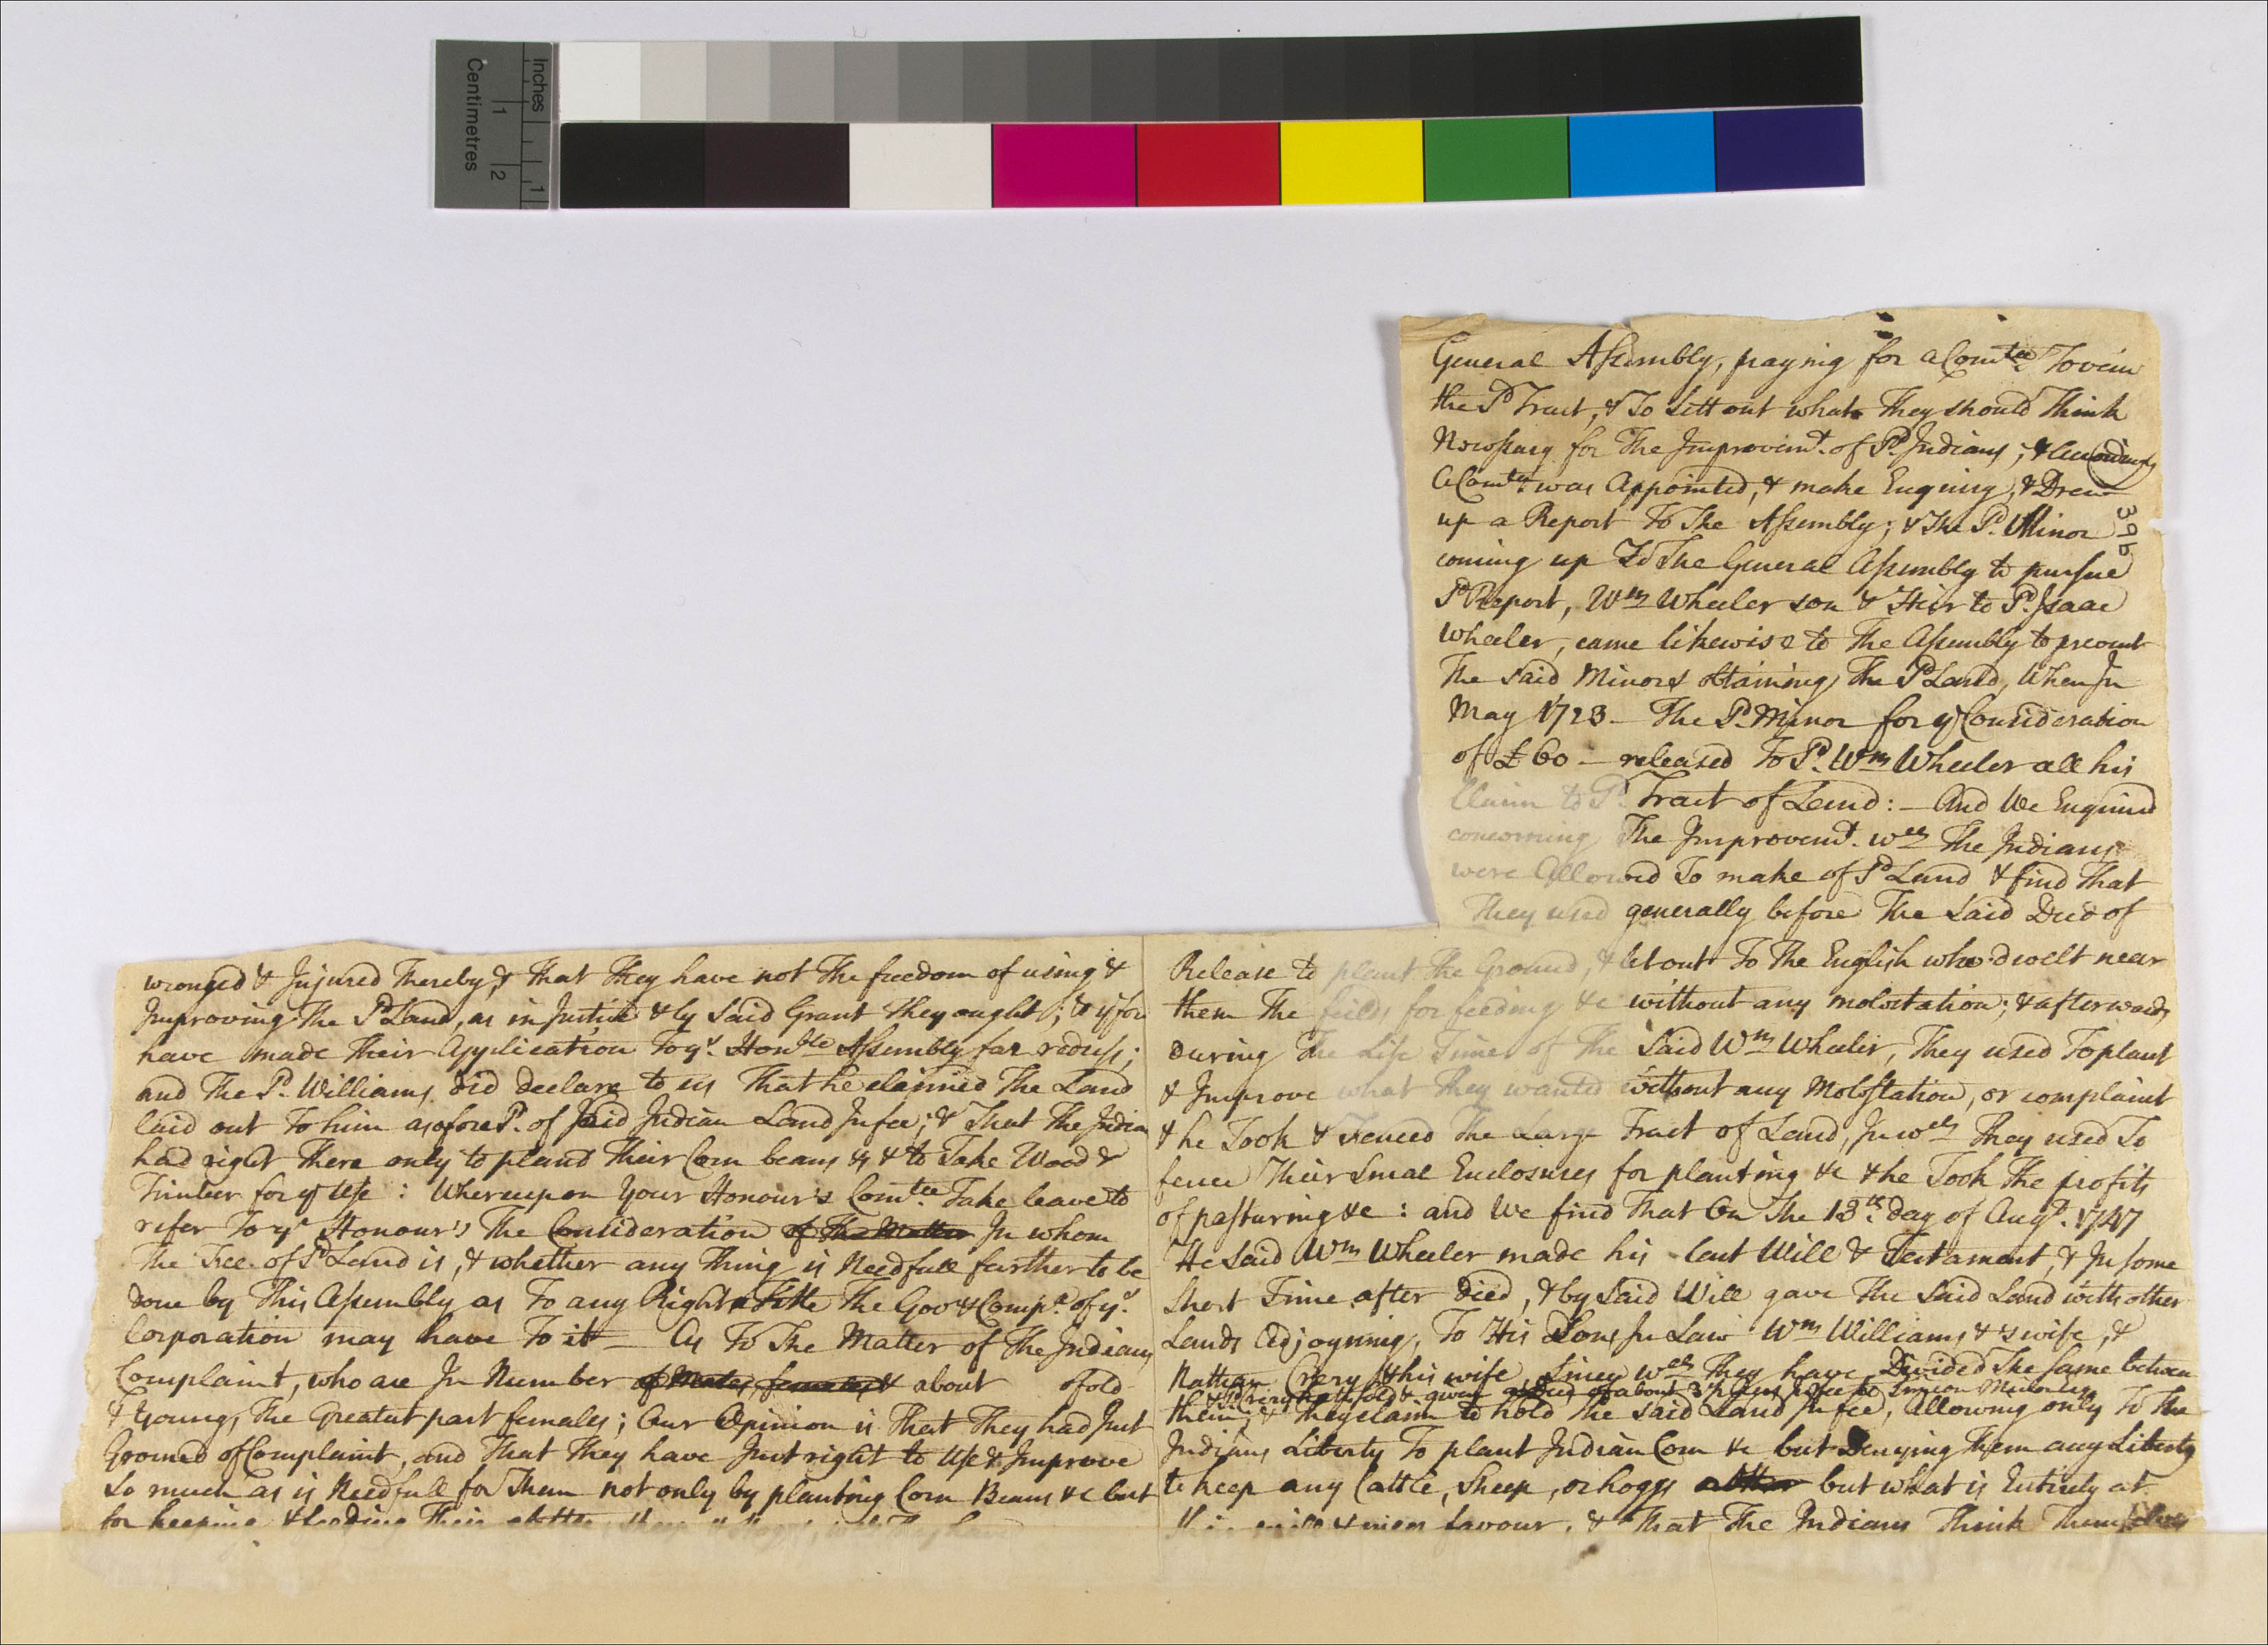 General Assembly, praying for a Comtee To veiu
the Sd Tract, & To Sett out what They should Think
Necessary for The Improvemt. of Sd Indians; & Accordingly
a Comtee was Appointed, & make Enquiry, & Drew
up a Report To The Assembly; & The Sd. Minor
coming up To The General Assembly to pursue
Sd Report, Wm Wheeler son & Heir to Sd. Isaac
Wheeler, came likewise to The Assembly to prevent
The said Minors obtaining The Sd Land, When In
May 1723 - The Sd. Minor for ye Consideration
of £60 - released To Sd. Wm Wheeler all his
Claim to Sd. Tract of Land: - And We Enquired
concerning The Improvemt. wch The Indians
were Allowed To make of Sd Land & find That
They used generally before The Said Deed of
Release to plant The Ground, & let out To The English who dwelt near
them The feilds for feeding &c without any molestation; & afterwards
During The Life Time of The Said Wm Wheeler, They used To plant
& Improve what They wanted without any Molestation, or complaint
& he Took & Fenced The Large Tract of Land, In wch They used To
fence Their Smal Enclosures for planting &c & he Took The profits
of pasturing &c : and We find That On The 13th. day of Augst. 1747
He Said Wm Wheeler made his last Will & Testament, & In some
Short Time after Died, & by Said Will gave The Said Land with other
Lands Adjoyning, To His Sons In Law Wm Williams & 's wife, &
Nathan Crery & his wife, Since wch They have Devided The Same between
& Sd Crery hath sold & given a Deed of about In fee to Simeon Minor
them, & They claim to hold The said Land In fee, Allowing only To The
Indians Liberty To plant Indian Corn &c but Denying Them any Liberty
to keep any Cattle, Sheep, or hoggs but what is Entirely at
favour, & That The Indians Think Themselves
396
wronged & Injured Thereby, & That They have not The freedom of using &
Improving The Sd Land, as in Justice & by Said Grant They ought; & yrfor
have made Their Application To yr. Honble Assembly for redress;
and The Sd. Williams did Declare to us That he claimed The Land
laid out To him as afore Sd. of Said Indian Land In fee; & That The Indians
had right There only to plant Their Corn beans &c & to Take Wood &
Timber for yr Use : Whereupon Your Honour's Comtee Take leave to
refer To yr Honour's The Consideration of The Matter In whom
The Fee of Sd Land is, & whether any Thing is Needfull further to be
done by This Assembly as To any Right or Title The Govr & Compa. of ys.
Corporation may have To it - As To The Matter of The Indians
Complaint, who are In Number of Males, females & about of old
& Young, The Greatest part females; Our Opinion is That They had Just
Ground of Complaint, and That They have Just right to Use & Improve
So much as is Needfull for Them not only by planting Corn Beans &c but
for keeping & feeding Their